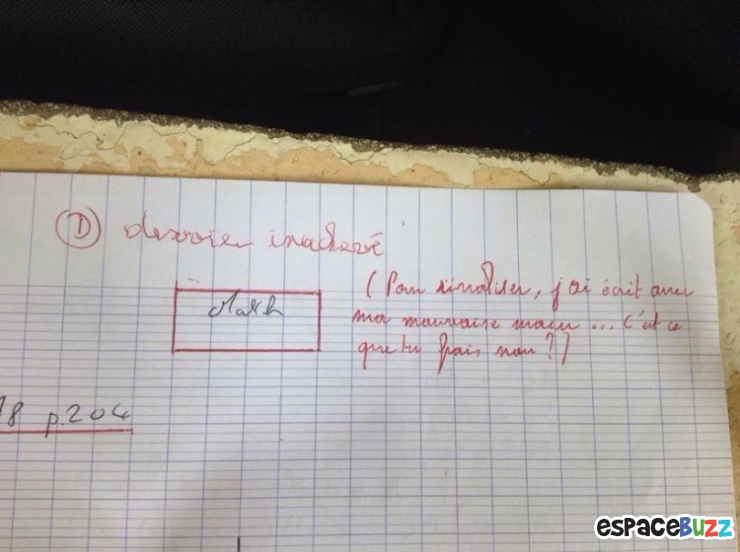 D devoir inachevé
Math
(Pour rivaliser, j'ai écrit avec
ma mauvaise main ... c'est ce
que tu fais non ?)
8 p.204
ESPACEBUZZ